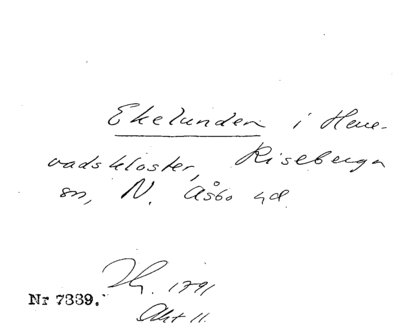 Ekelunden i Herre-
vadskloster, Riseberga
sn, N. Åsbo hd.
1791
Nr 7339.
Akt 11.